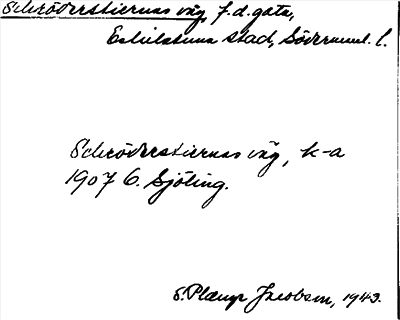 Schröderstiernas väg, f.d. gata,
Eskilstuna stad, Söderманl. l.
Schröderstiernas väg, k-a
1907 C. Sjöling.
S. Plæup Jacobsen, 1943.